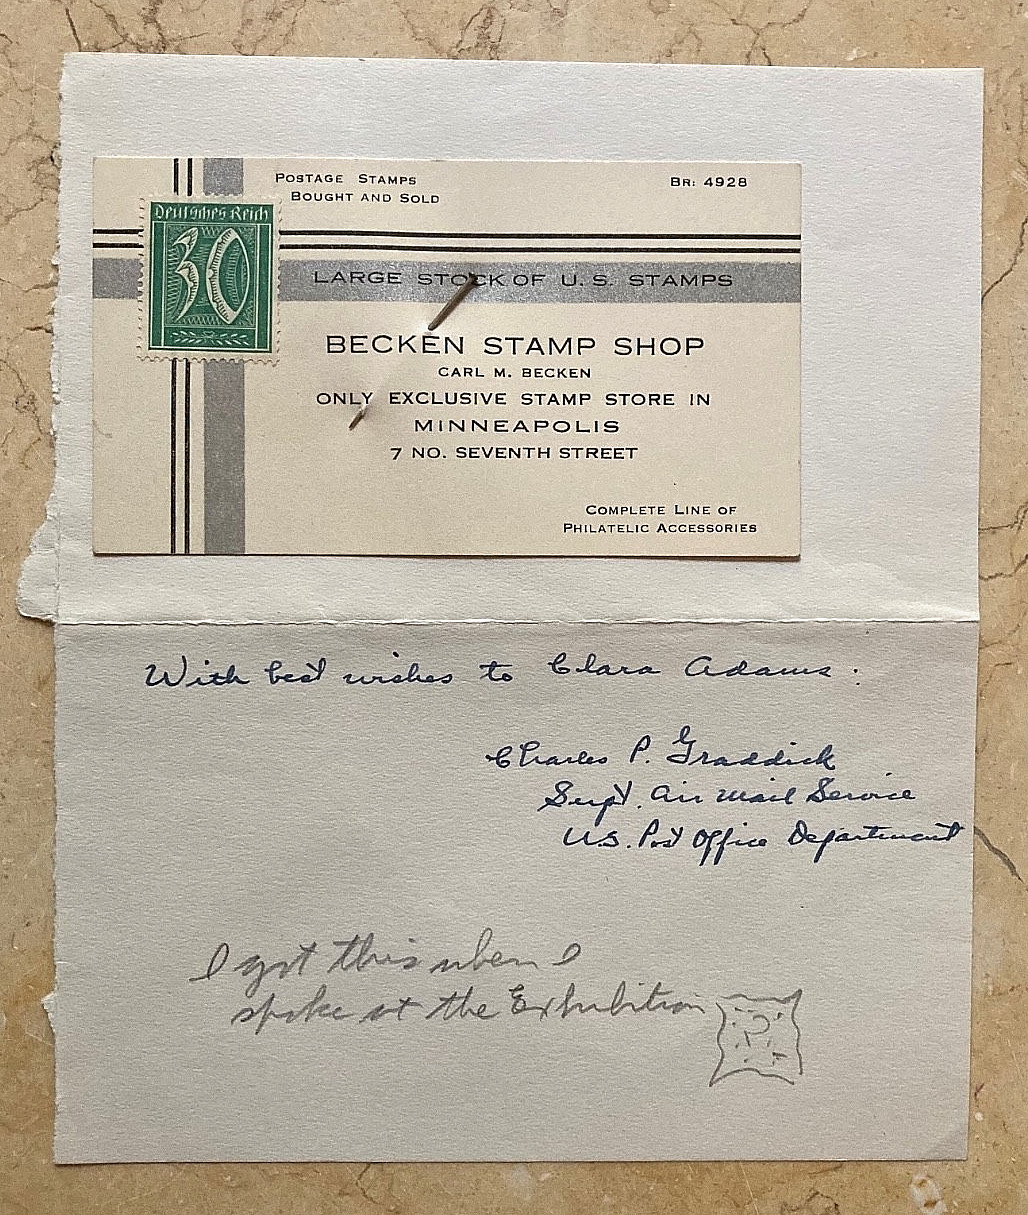 POSTAGE STAMPS
BOUGHT AND SOLD
BR: 4928
Deutsches Reich
30
LARGE STOCK OF U. S. STAMPS
BECKEN STAMP SHOP
CARL M. BECKEN
ONLY EXCLUSIVE STAMP STORE IN
MINNEAPOLIS
7 NO. SEVENTH STREET
COMPLETE LINE OF
PHILATELIC ACCESSORIES
With best wishes to Clara Adams:
Charles P. Graddick
Supt. Air Mail Service
U.S. Post Office Department
I got this when I
spoke at the Exhibition